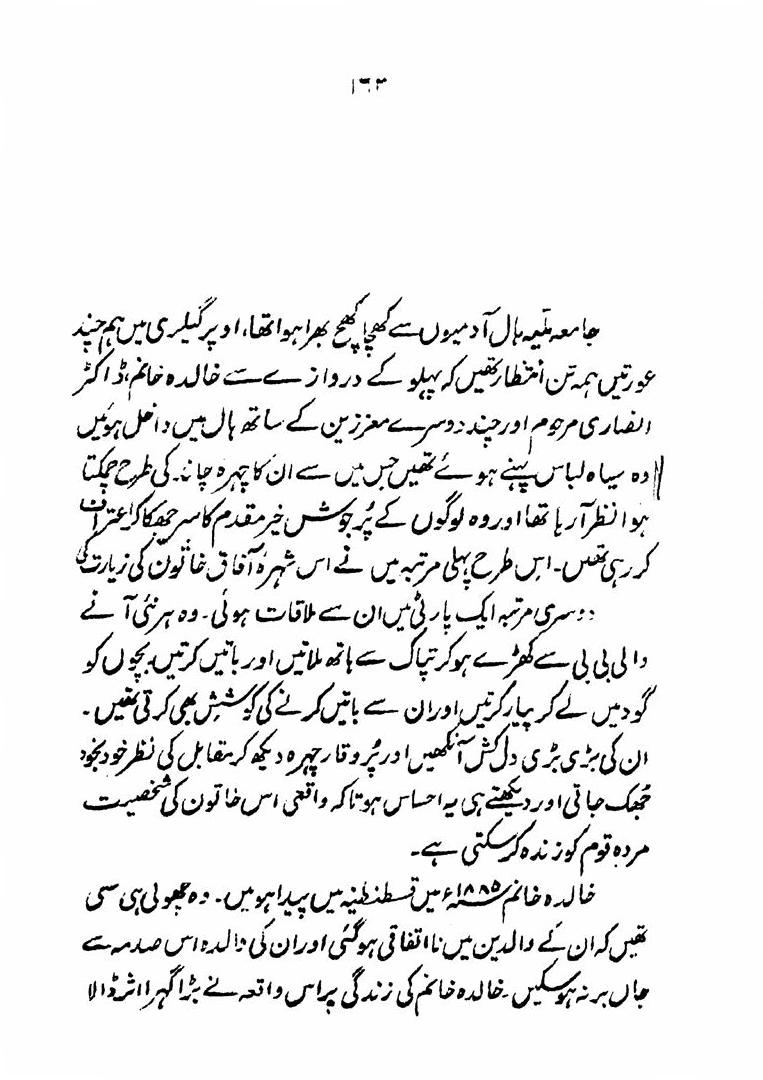 ۱۶۳
جامعہ ملیہ ہال آدمیوں سے کھچا کھچ بھرا ہوا تھا، اوپر گیلری میں ہم چند
عورتیں ہمہ تن انتظار تھیں کہ پہلو کے دروازے سے خالدہ خانم، ڈاکٹر
انصاری مرحوم اور چند دوسرے معززین کے ساتھ ہال میں داخل ہوئیں
وہ سیاہ لباس پہنے ہوئے تھیں جس میں سے ان کا چہرہ چاند کی طرح چمکتا
ہوا نظر آ رہا تھا اور وہ لوگوں کے پُرجوش خیر مقدم کا سر جھکا کر اعتراف
کر رہی تھیں۔ اس طرح پہلی مرتبہ میں نے اس شہرۂ آفاق خاتون کی زیارت کی
دوسری مرتبہ ایک پارٹی میں ان سے ملاقات ہوئی۔ وہ ہر نئی آنے
والی بی بی سے کھڑے ہو کر تپاک سے ہاتھ ملاتیں اور باتیں کرتیں بچوں کو
گود میں لے کر پیار کرتیں اور ان سے باتیں کرنے کی کوشش بھی کرتی تھیں۔
ان کی بڑی بڑی دل کش آنکھیں اور پُر وقار چہرہ دیکھ کر مقابل کی نظر خودبخود
جُھک جاتی اور دیکھتے ہی یہ احساس ہوتا کہ واقعی اس خاتون کی شخصیت
مردہ قوم کو زندہ کر سکتی ہے۔
خالدہ خانم ۱۸۸۵ء میں قسطنطنیہ میں پیدا ہوئیں۔ وہ چھوٹی ہی سی
تھیں کہ ان کے والدین میں نااتفاقی ہو گئی اور ان کی والدہ اس صدمہ سے
جاں بر نہ ہو سکیں۔ خالدہ خانم کی زندگی پر اس واقعہ نے بڑا گہرا اثر ڈالا